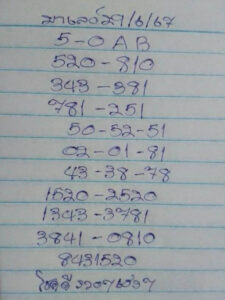 มาเลย์29/6/67
5-0 A B
520-810
343-381
781-251
50-52-51
02-01-81
43-38-78
1520-2520
1343-3781
3841-0810
8431520
โชคดี